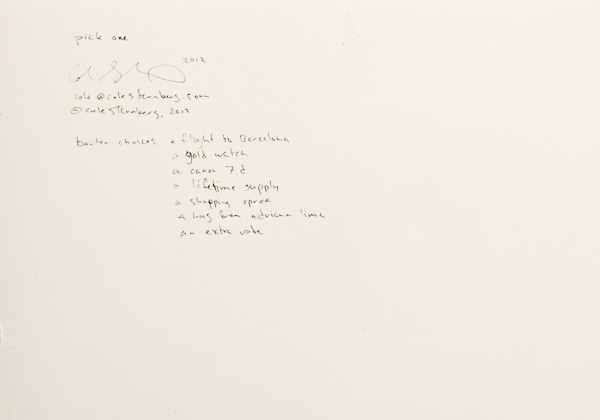 pick one
2012
cole@colesternberg.com
@colesternberg, 2012
barter choices: a flight to Barcelona
a gold watch
a canon 7d
a lifetime supply
a shopping spree
a hug from adriana lima
an extra vote